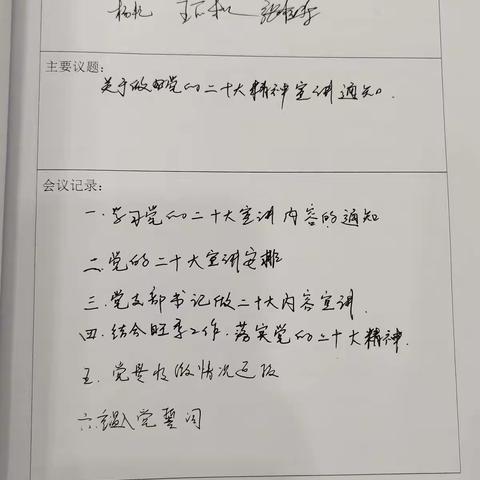 主要议题：
关于做好党的二十大精神宣讲通知。
会议记录：
一.学习党的二十大宣讲内容的通知
二.党的二十大宣讲安排
三.党支部书记做二十大内容宣讲.
四.结合旺季工作.落实党的二十大精神.
五.党费收缴情况通报
六.重温入党誓词